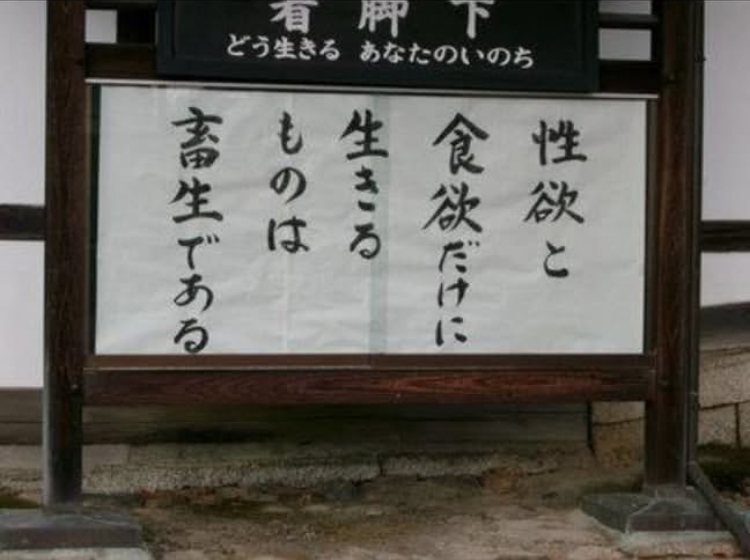 看脚下
どう生きる あなたのいのち
性欲と
食欲だけに
生きる
ものは
畜生である